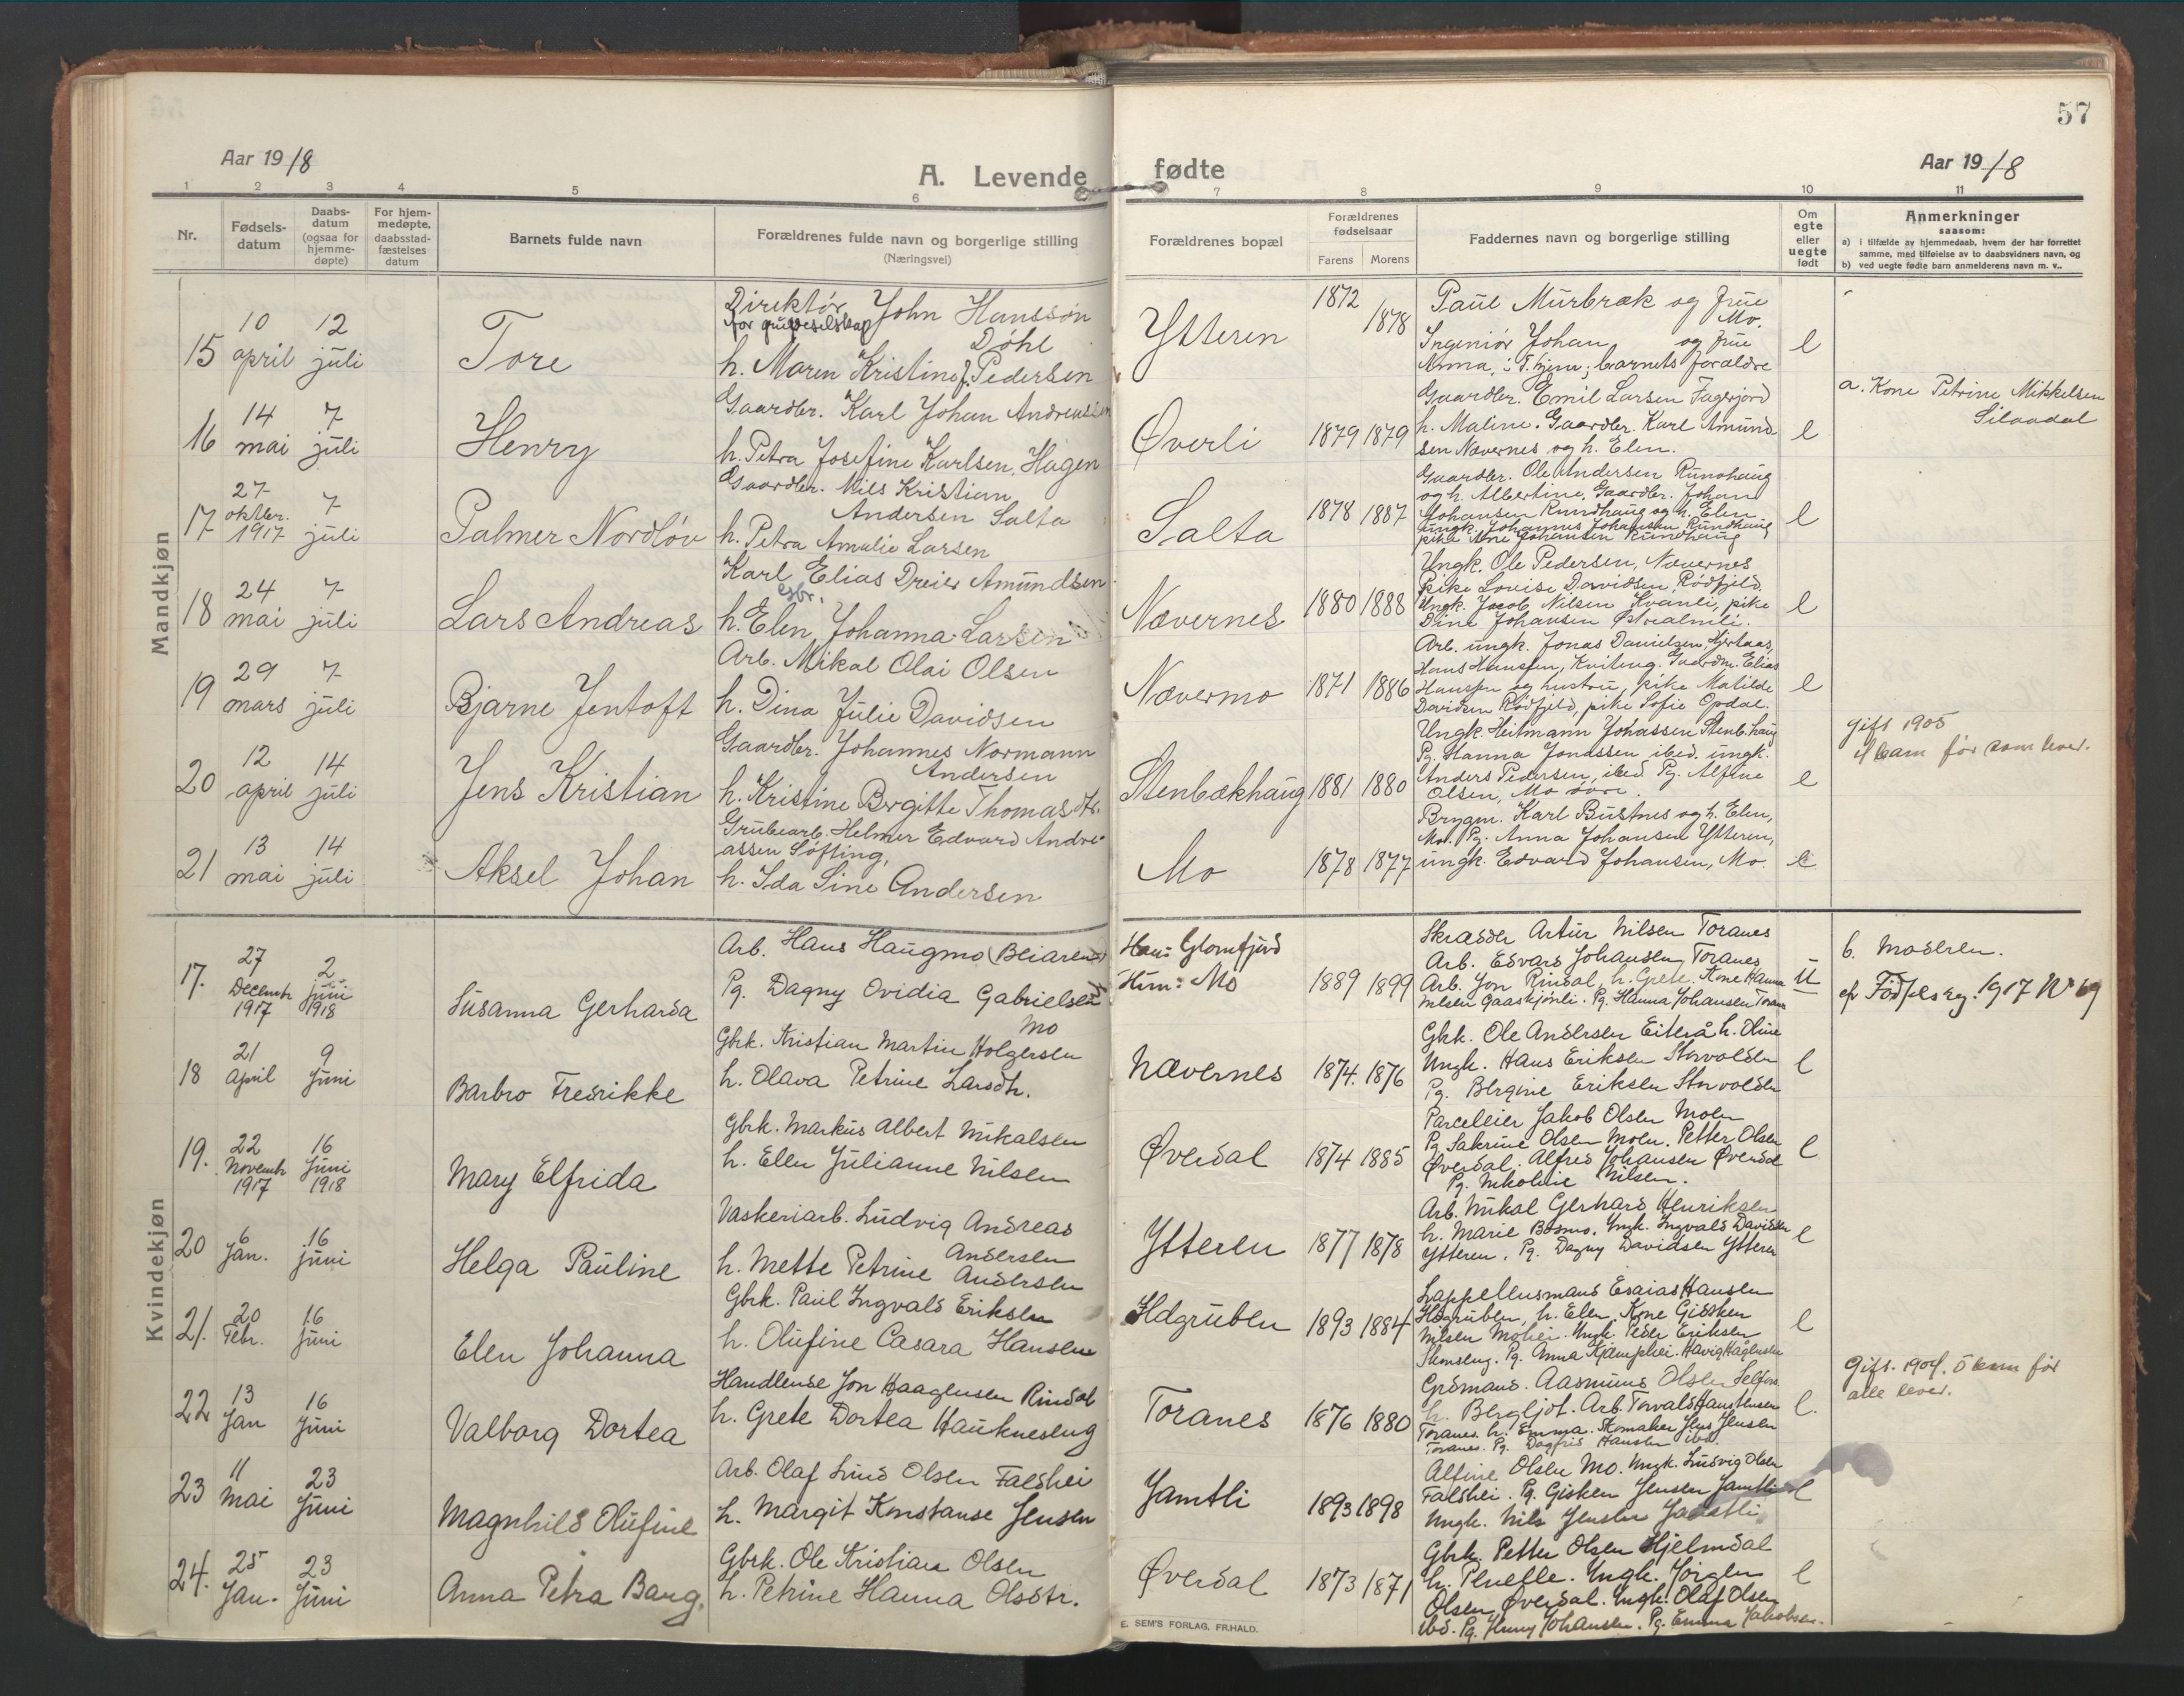 57
Aar 1918
A. Levende fødte
Aar 1918
1 2 3 4 5 6 7 8 9 10 11
Nr.
Fødsels-
datum
Daabs-
datum
(ogsaa for
hjemme-
døpte)
For hjem-
medøpte,
daabsstad-
fæstelses
datum
Barnets fulde navn
Forældrenes fulde navn og borgerlige stilling
(Næringsvei)
Forældrenes bopæl
Forældrenes
fødselsaar
Farens Morens
Faddernes navn og borgerlige stilling
Om
egte
eller
uegte
født
Anmerkninger
saasom:
a) i tilfælde av hjemmedaab, hvem der har forrettet
samme, med tilføielse av to daabsvidners navn, og
b) ved uegte fødte barn anmelderens navn m. v..
Mandkjøn
15
10
april
12
juli
Tore
Direktör John Hansson
for grubeselskap
Døhl
h. Maren Kristine f. Pedersen
Ytteren
1872
1878
Paul Murbræk og frue
Mo.
Ingeniør Johan og frue
Anna, i T.hjem; barnets forældre
e
16
14
mai
7
juli
Henry
Gaardbr. Karl Johan Andreassen
h. Petra Josefine Karlsen, Hagen
Øverli
1879 1879
Gaardbr. Emil Larsen Fagerjord
h. Maline. Gaardbr. Karl Amund
sen Nævernes og h. Elen.
e
a. Kone Petrine Mikkelsen
17
27
oktbr.
1917
7
juli
Palmer Nordløv
Gaardbr. Nils Kristian
Andersen Salta
h. Petra Amalie Larsen
Salta
1878 1887
Gaardbr. Ole Andersen Rundhaug
og h. Albertine, Gaardbr. Johan
Johansen Rundhaug og h. Elen
ungk. Johannes Johansen Rundhaug
pike Ane Johansen Rundhaug
e
18
24
mai
7
juli
Lars Andreas
Karl Elias Dreier Amundsen
Gbr.
h. Elen Johanna Larsen
Nævernes
1880 1888
Ungk. Ole Pedersen, Nævernes
Pike Lovise Davidsen, Rødfjeld
Ungk. Jacob Nilsen Kvanli, pike
Dina Johansen
e
19
29
mars
7
juli
Bjarne Jentoft
Arb. Mikal Olai Olsen
h. Dina Julie Davidsen
Nævermo
1871 1886
Arb. ungk. Jonas Danielsen,
Hans Hansen, Gaardm. Elias
Hansen og hustru, pike Matilde
Davidsen Rødfjeld, pike Sofie Opdal.
e
20
12
april
14
juli
Jens Kristian
Gaardbr. Johannes Normann
Andersen
h. Kristine Bergitte Thomasdtr.
Stenbækhaug
1881 1880
Ungk. Heitmann Johansen Stenb.haug
Pg. Hanna Jonassen ibed. ungk.
Anders Pedersen, ibed. Pg. Alfine
Olsen, Mo
e
gift 1905
4 barn før som lever.
21
13
mai
14
juli
Aksel Johan
Grubearb. Helmer Edvard Andre-
assen Søfting,
h. Ida Sine Andersen
Mo
1878 1877
Brygm. Karl Bustnes og h. Elen,
Mo. Pg. Anna Johansen Ytteren,
ungk. Edvard Johansen, Mo.
e
Kvindekjøn
17.
27
Decembr
1917
2
juni
1918
Susanna Gerharda
Arb. Hans Haugmo (Beiaren)
Pg. Dagny Ovidia Gabrielsen
Mo
Han: Glomfjord
Hun: Mo
1889 1899
Skræder Artur Nilsen Toranes
Arb. Edvard Johansen Toranes
Arb. Jon Rindal, h. Grete. Kone Hanna
Nilsen Gaaskjønli. Pg. Hanna Johansen Toranes
U
b. Moderen.
cfr Födselsreg. 1917 No 69
18
21
April
9
Juni
Barbro Fredrikke
Gbrk. Kristian Martin Holgersen
h. Olava Petrine Larsdtr.
Nævernes
1874. 1876
Gbrk. Ole Andersen Eiterå h. Oline
Ungk. Hans Eriksen Storvolden
Pg. Bergine Eriksen Storvolden
e
19.
22
Novembr
1917
16
Juni
1918
Mary Elfrida
Gbrk. Markus Albert Mikalsen
h. Ellen Julianne Nilsen
Øverdal
1874 1885
Parceleier Jakob Olsen Moen
Pg. Sakrine Olsen Moen. Petter Olsen
Øverdal. Alfred Johansen Øverdal
Pg. Nikoline Nilsen.
e
20
6
Jan.
16
juni
Helga Pauline
Vaskeriarb. Ludvig Andreas
Andersen
h. Mette Petrine Andersen
Ytteren
1877 1878
Arb. Mikal Gerhard Henriksen
h. Marie Bosmo. Ungk. Ingvald Davidsen
Ytteren. Pg. Dagny Davidsen Ytteren
e
21.
20
Febr.
16
Juni
Elen Johanna
Gbrk. Paul Ingvald Eriksen
h. Olufine Casara Hansen
Ildgruben
1893 1884
Lappelensmand Esaias Hansen
Ildgruben, h. Elen, Kone Gidsken
Nilsen Mohei. Ungk. Peder Eriksen
Stenseng. Pg. Anna Kjæmphei.
e
22
13
Jan
16
Juni
Valborg Dortea
Handlende Jon Haagensen Rindal
h. Grete Dortea Haukneseng
Toranes
1876 1880
Grdmand. Aasmund Olsen Selfors
h. Bergljot. Arb. Torvald Haustensen
Toranes. h. Emma. Skomaker Jens Jensen
Toranes. Pg. Dagfrid Hansen ibd.
e.
Gift. 1904. 5 barn før
alle lever.
23
11
Mai
23
Juni
Magnhild Olufine
Arb. Olaf Lund Olsen Falshei
h. Margit Konstanse Jensen
Jamtli
1893 1898
Alfine Olsen Mo. Ungk. Ludvig Olsen
Falshei. Pg. Gisken Jensen Jamtli
Ungk. Nils Jensen Jamtli
e
24.
25
Jan.
23
Juni
Anna Petra Barg.
Gbrk. Ole Kristian Olsen
h. Petrine Hanna Olsdtr.
Øverdal
1873 1871
Gbrk. Petter Olsen Hjelmdal
h. Pernelle. Ungk. Jørgen
Olsen Øverdal. Ungk. Olaf Olsen
ibd. Pg. Jenny Johansen. Pg. Emma Jakobsen.
e
E. SEM'S FORLAG, FR.HALD.